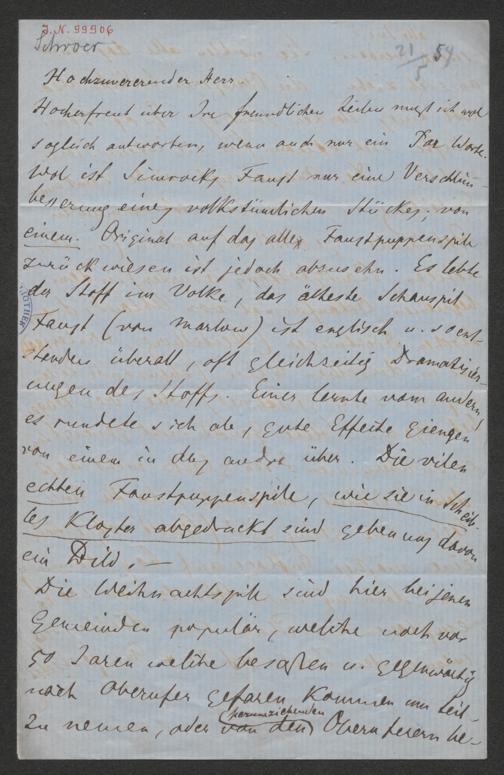 J. N. 99906
Schröer
21/5 54
Hochzuvererender Herr
Hocherfreut über Ire freundlichen Zeilen muß ich wol
sogleich antworten, wenn auch nur ein Par Worte.
Wol ist Simrocks Faust nur eine Verschlim-
beßerung eines volkstümlichen Stückes. von
einem Original auf das alle Faustpuppenspile
zurückwiesen ist jedoch abzusehn. Es lebte
der Stoff im Volke, das älteste Schauspil
Faust (von Marlow) ist englisch u. so ent-
standen überall, oft gleichzeitig Dramatisier-
ungen des Stoffs. Einer lernte vom andern,
es rundete sich ab, gute Effecte giengen
von einem in das andre über. Die vilen
echten Faustpuppenspile, wie sie in Scheib-
les Kloster abgedruckt sind geben uns davon
ein Bild. —
Die Weihnachtspile sind hier bei jenen
Gemeinden populär, welche noch vor
50 Jaren welche besaßen u. gegenwärtig
nach Oberufer gefaren kommen um teil-
zu nemen, oder von den herumziehenden Oberuferern be-